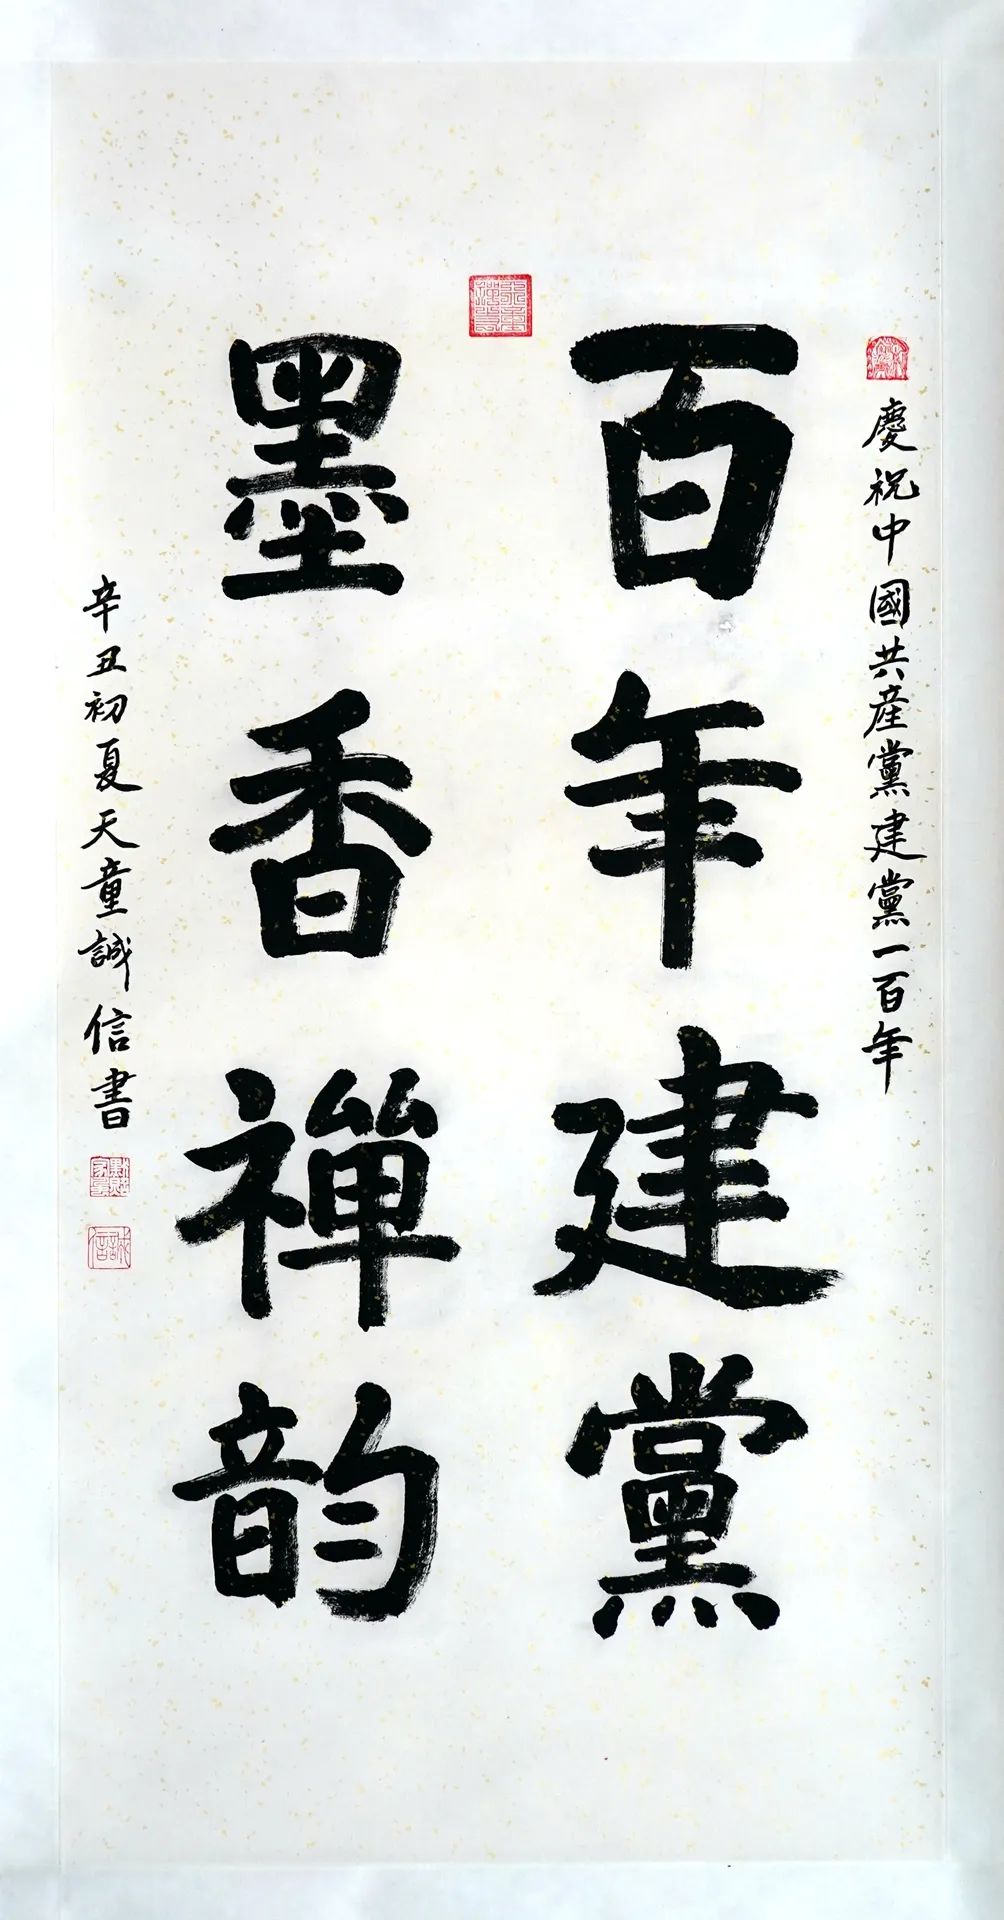 慶祝中國共産黨建黨一百年
百年建黨
墨香禪韵
辛丑初夏天童誠信書
誠信